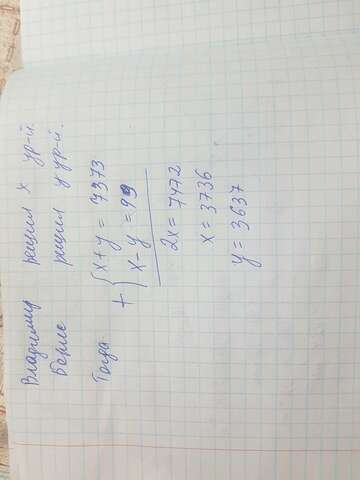 Владимир решил x ур-й.
Борис решил y ур-й.
Тогда + { x+y = 7373
x-y = 99
2x = 7472
x = 3736
y = 3637